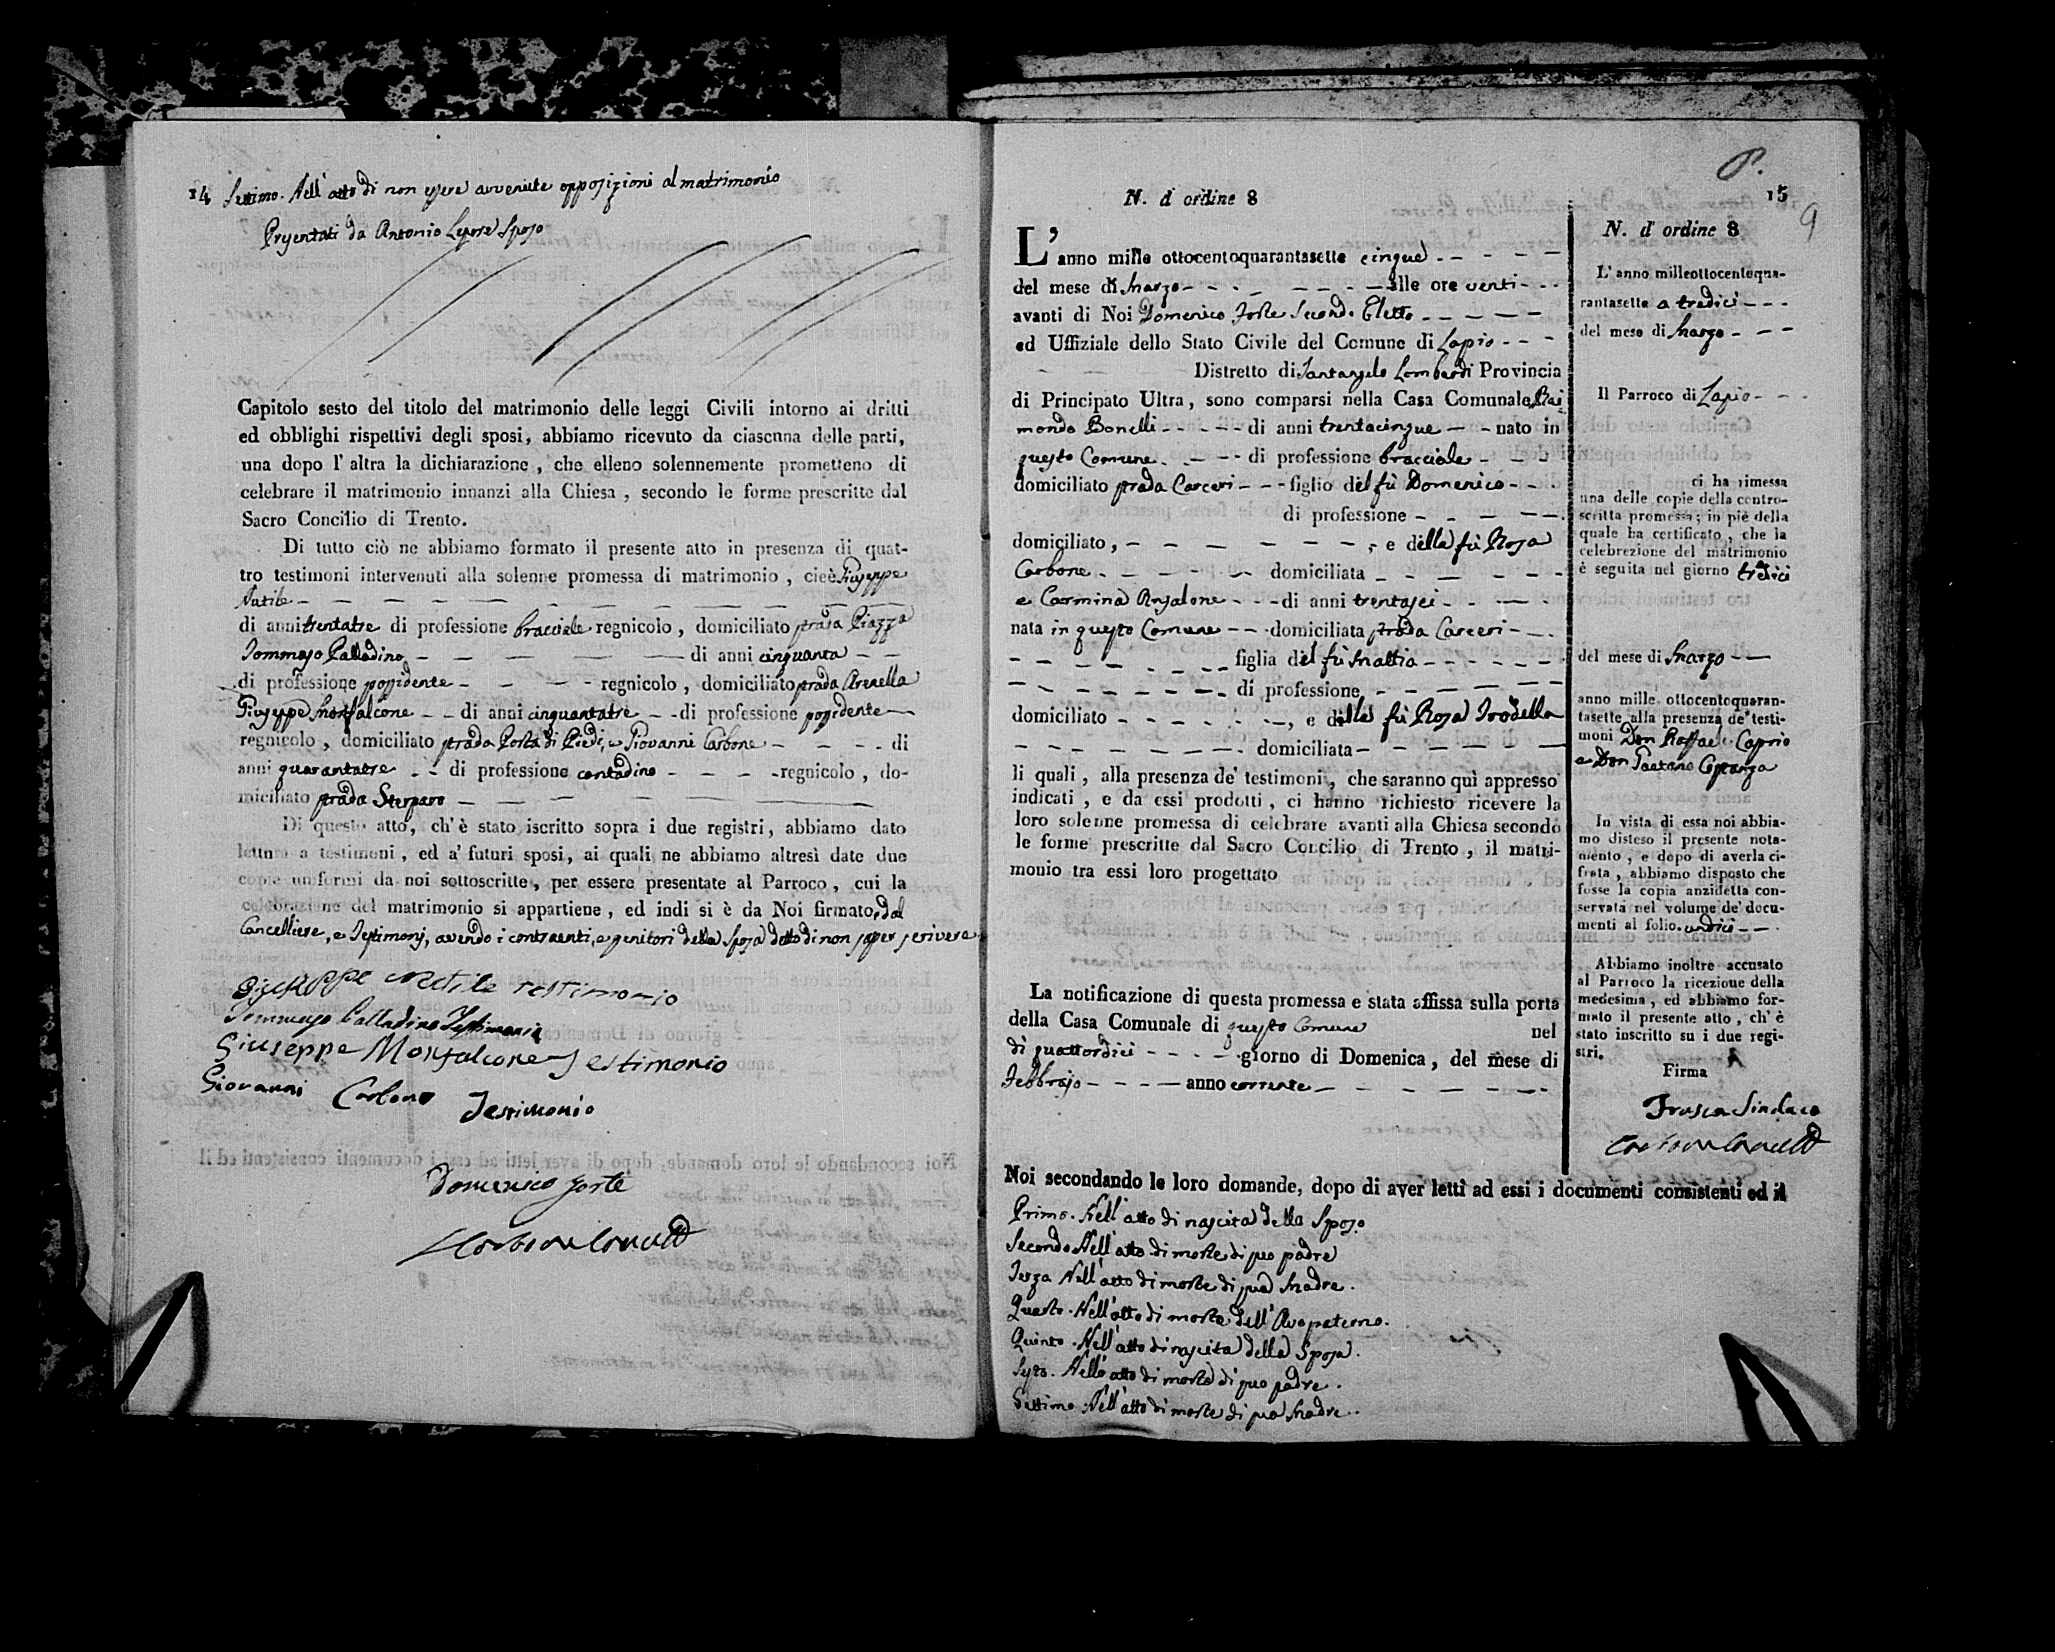 14
Settimo. Nell'atto di non essere avvenute opposizioni al matrimonio
Presentati da Antonio Lepore Sposo
Capitolo sesto del titolo del matrimonio delle leggi Civili intorno ai dritti
ed obblighi rispettivi degli sposi, abbiamo ricevuto da ciascuna delle parti,
una dopo l'altra la dichiarazione, che elleno solennemente promettono di
celebrare il matrimonio innanzi alla Chiesa, secondo le forme prescritte dal
Sacro Concilio di Trento.
Di tutto ciò ne abbiamo formato il presente atto in presenza di quat-
tro testimoni intervenuti alla solenne promessa di matrimonio, cioè Giuseppe
di anni trentatre di professione bracciale regnicolo, domiciliato strada Piazza
Tommaso Palladino di anni cinquanta
di professione possidente regnicolo, domiciliato strada Arenella
Giuseppe Monfalcone di anni cinquantatre di professione possidente
regnicolo, domiciliato strada Porta di Piedi, e Giovanni Carbone di
anni quarantatre di professione contadino regnicolo, do-
miciliato strada Sterparo
Di questo atto, ch'è stato iscritto sopra i due registri, abbiamo dato
lettura a testimoni, ed a' futuri sposi, ai quali ne abbiamo altresì date due
copie uniformi da noi sottoscritte, per essere presentate al Parroco, cui la
celebrazione del matrimonio si appartiene, ed indi si è da Noi firmato, dal
Cancelliere, e Testimonj, avendo i contraenti, e genitori della Sposa detto di non saper scrivere
Giuseppe testimonio
Tommaso Palladino Testimonio
Giuseppe Monfalcone Testimonio
Giovanni Carbone Testimonio
Domenico Forte
15
9
N. d'ordine 8
L'anno mille ottocentoquarantasette cinque
del mese di Marzo alle ore venti
avanti di Noi Domenico Forte Secondo Eletto
ed Uffiziale dello Stato Civile del Comune di Lapio
Distretto di Santangelo Lombardi Provincia
di Principato Ultra, sono comparsi nella Casa Comunale Rai
mondo Bonelli di anni trentacinque nato in
questo Comune di professione bracciale
domiciliato strada Carceri figlio del fù Domenico
di professione
domiciliato, e della fù Rosa
Carbone domiciliata
e Carmina Ansalone di anni trentasei
nata in questo Comune domiciliata strada Carceri
figlia del fù Mattia
di professione
domiciliato, e della fù Rosa
domiciliata
li quali, alla presenza de' testimoni, che saranno quì appresso
indicati, e da essi prodotti, ci hanno richiesto ricevere la
loro solenne promessa di celebrare avanti alla Chiesa secondo
le forme prescritte dal Sacro Concilio di Trento, il matri-
monio tra essi loro progettato
La notificazione di questa promessa e stata affissa sulla porta
della Casa Comunale di questo Comune nel
dì quattordici giorno di Domenica, del mese di
Febbrajo anno corrente
N. d'ordine 8
L'anno milleottocentoqua-
rantasette a tredici
del mese di Marzo
Il Parroco di Lapio
ci ha rimessa
una delle copie della contro-
scritta promessa; in piè della
quale ha certificato, che la
celebrezione del matrimonio
è seguita nel giorno tredici
del mese di Marzo
anno mille ottocentoquaran-
tasette alla presenza de' testi-
moni Don Raffaele Caprio
e Don Gaetano Costanza
In vista di essa noi abbia-
mo disteso il presente nota-
mento, e dopo di averla ci-
frata, abbiamo disposto che
fosse la copia anzidetta con-
servata nel volume de' docu-
menti al folio undici
Abbiamo inoltre accusato
al Parroco la ricezione della
medesima, ed abbiamo for-
mato il presente atto, ch'è
stato inscritto su i due regi-
stri.
Firma
Frusca Sindaco
Noi secondando le loro domande, dopo di aver letti ad essi i documenti consistenti ed il
Primo. Nell'atto di nascita dello Sposo
Secondo Nell'atto di morte di suo padre
Terzo Nell'atto di morte di sua Madre.
Quarto. Nell'atto di morte dell'Avo paterno.
Quinto. Nell'atto di nascita della Sposa.
Sesto. Nell'atto di morte di suo padre.
Settimo. Nell'atto di morte di sua Madre.